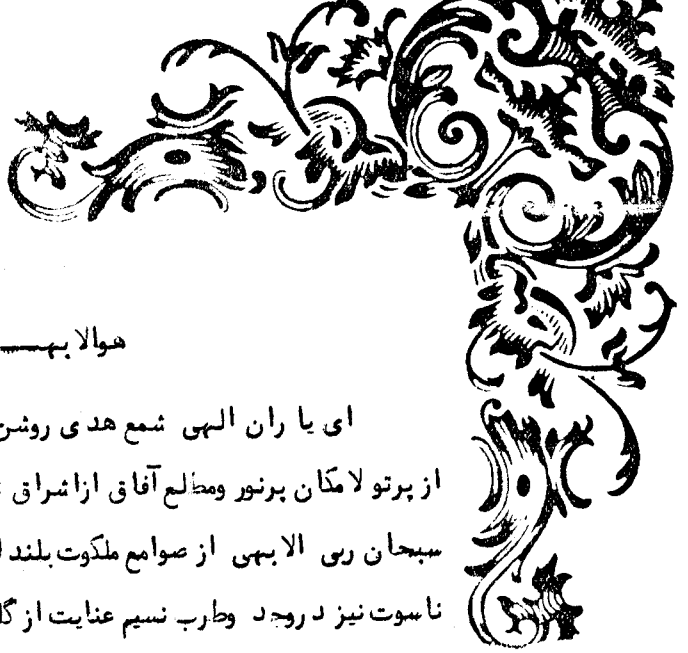 هوالابهـــى
ای یاران الهی شمع هدی روشن
از پرتو لامکان پرنور ومطالع آفاق ازاشراق
سبحان ربی الابهی از صوامع ملکوت بلند
ناسوت نیز دروجد وطرب نسیم عنایت از